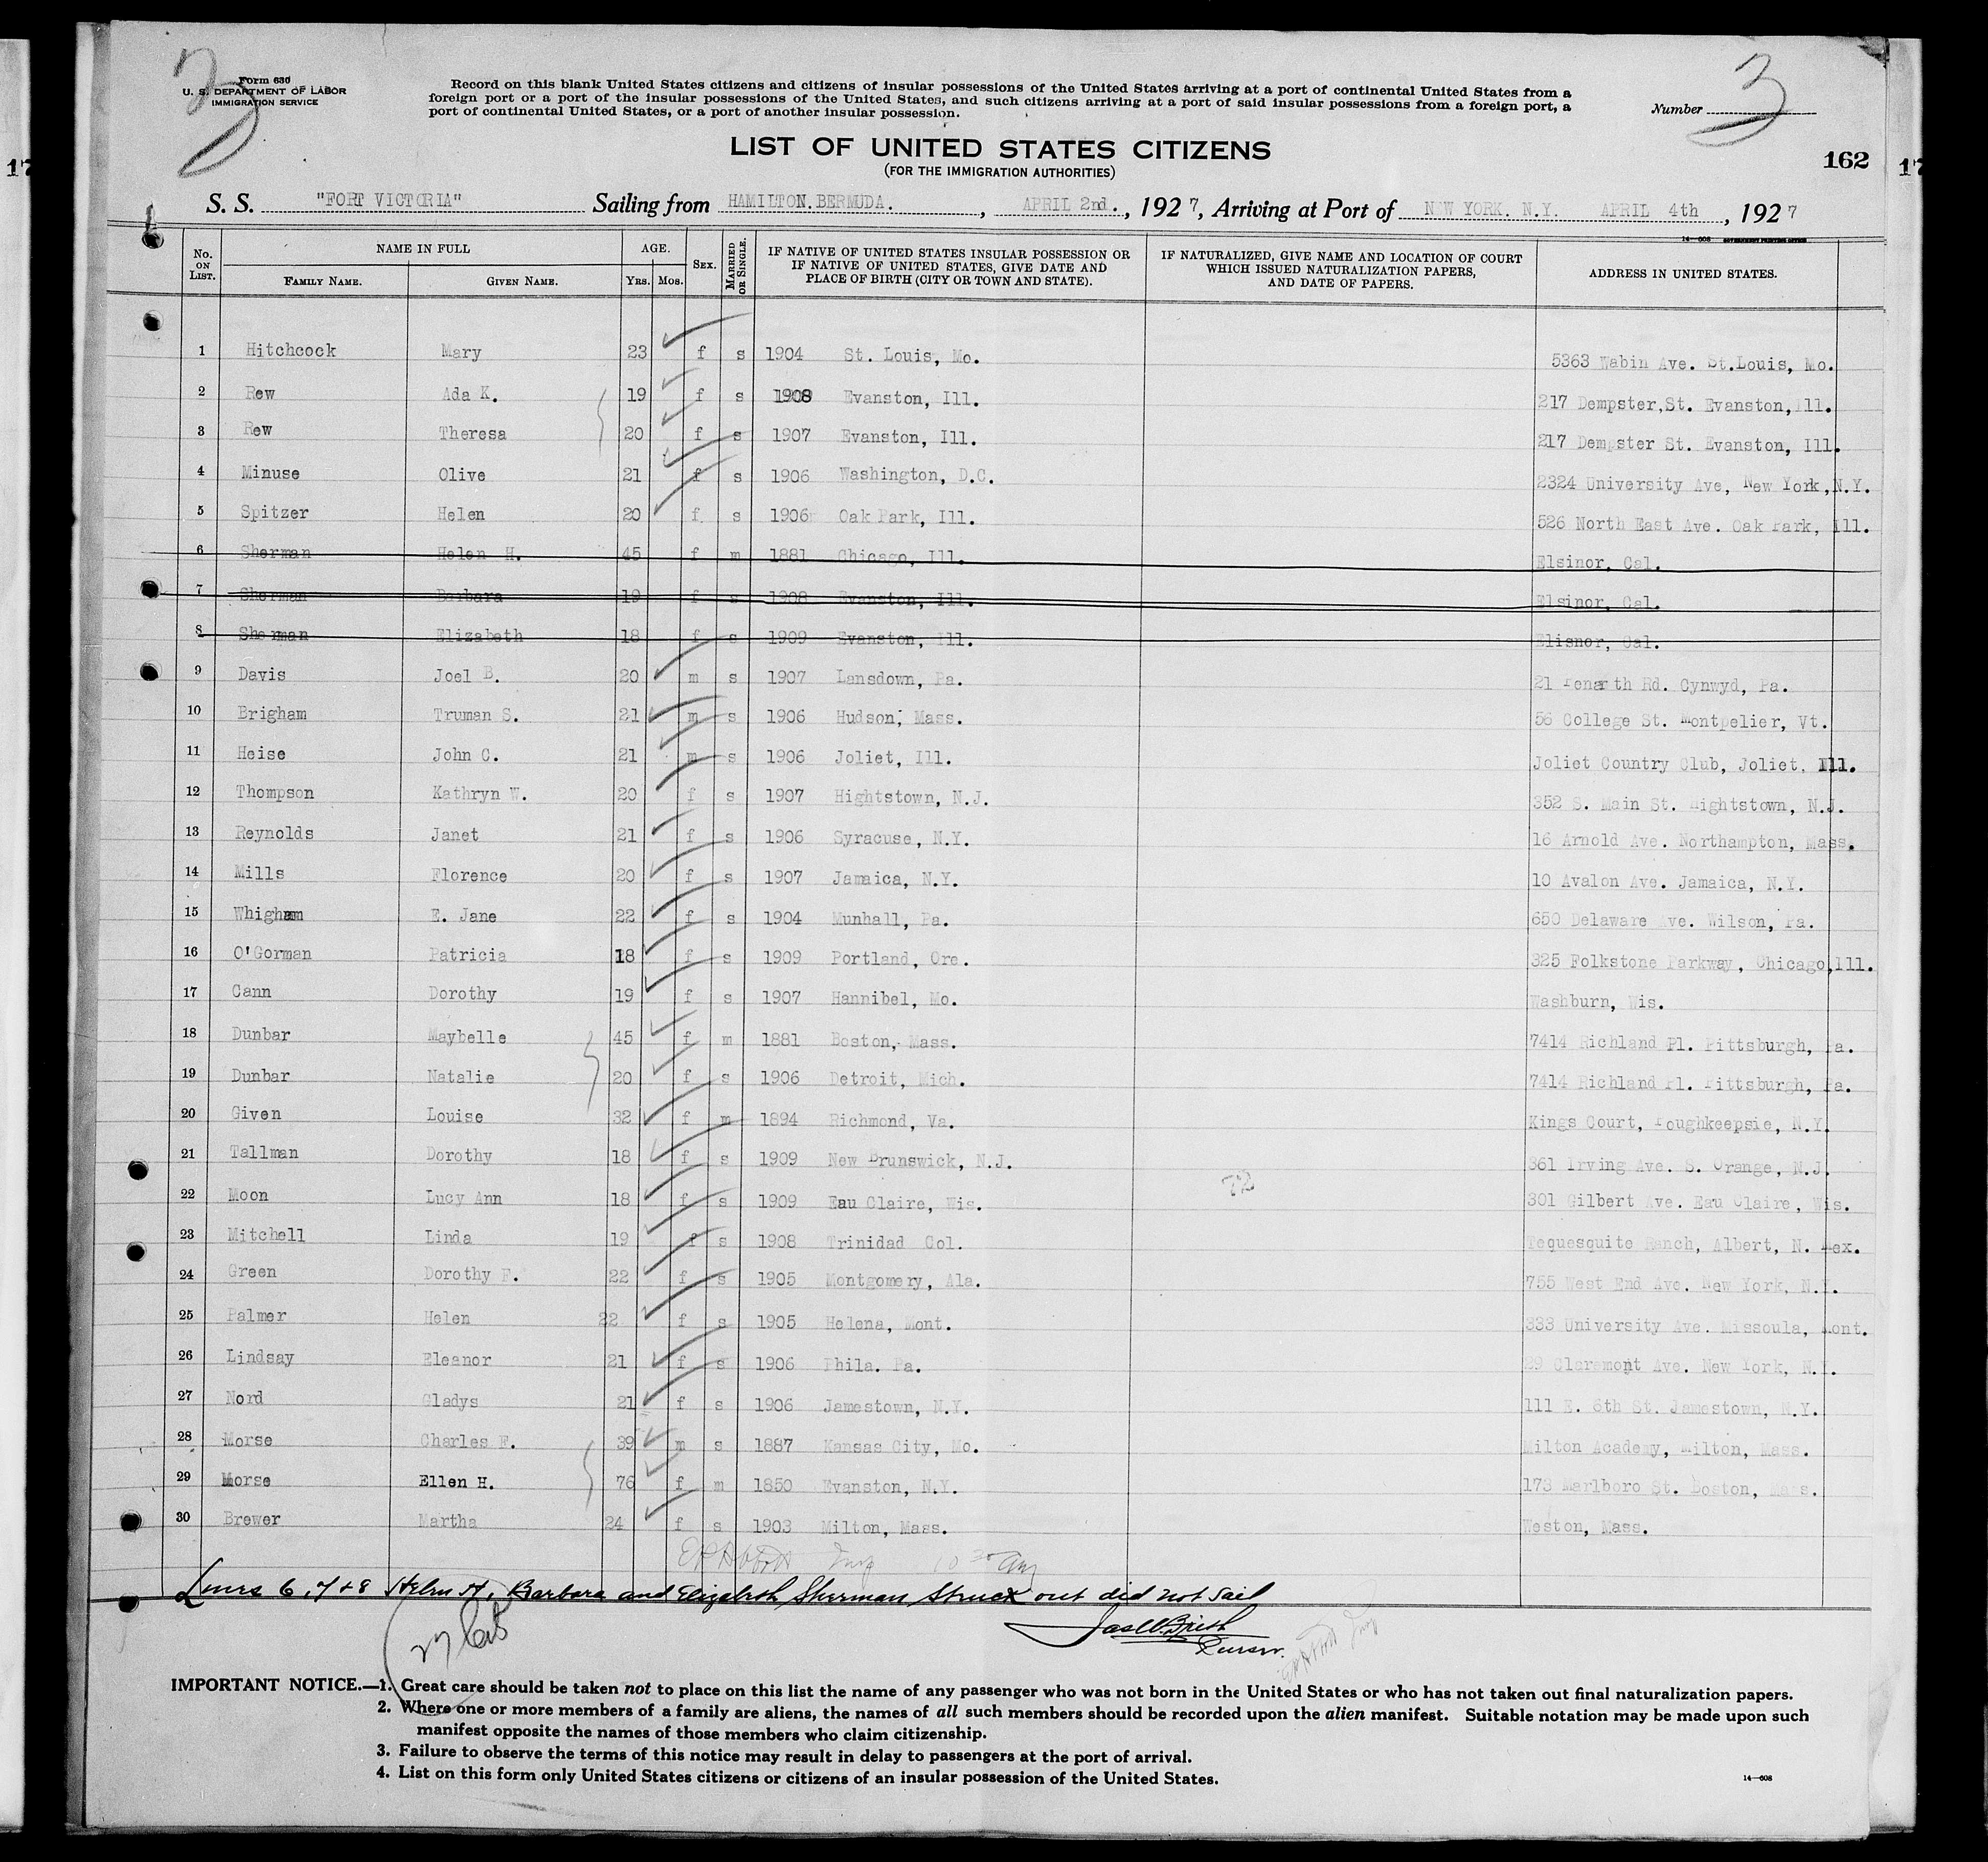 3
3
Form 630
U. S. DEPARTMENT OF LABOR
IMMIGRATION SERVICE
Record on this blank United States citizens and citizens of insular possessions of the United States arriving at a port of continental United States from a
foreign port or a port of the insular possessions of the United States, and such citizens arriving at a port of said insular possessions from a foreign port, a
port of continental United States, or a port of another insular possession.
Number
LIST OF UNITED STATES CITIZENS
(FOR THE IMMIGRATION AUTHORITIES)
162
17
17
S. S. "FORT VICTORIA" Sailing from HAMILTON.BERMUDA. , APRIL 2nd. , 1927, Arriving at Port of NEW YORK. N.Y. APRIL 4th , 1927
14—608 GOVERNMENT PRINTING OFFICE
No. ON LIST. NAME IN FULL FAMILY NAME. GIVEN NAME. AGE. YRS. MOS. SEX. MARRIED OR SINGLE. IF NATIVE OF UNITED STATES INSULAR POSSESSION OR IF NATIVE OF UNITED STATES, GIVE DATE AND PLACE OF BIRTH (CITY OR TOWN AND STATE). IF NATURALIZED, GIVE NAME AND LOCATION OF COURT WHICH ISSUED NATURALIZATION PAPERS, AND DATE OF PAPERS. ADDRESS IN UNITED STATES.
1 Hitchcock Mary 23 f s 1904 St. Louis, Mo. 5363 Wabin Ave. St.Louis, Mo.
2 Rew Ada K. 19 f s 1908 Evanston, Ill. 217 Dempster,St. Evanston,Ill.
3 Rew Theresa 20 f s 1907 Evanston, Ill. 217 Dempster St. Evanston, Ill.
4 Minuse Olive 21 f s 1906 Washington, D.C. 2324 University Ave, New York,N.Y.
5 Spitzer Helen 20 f s 1906 Oak Park, Ill. 526 North East Ave. Oak Park, Ill.
6 Sherman Helen H. 45 f m 1881 Chicago, Ill. Elsinor, Cal.
7 Sherman Barbara 19 f s 1908 Evanston, Ill. Elsinor, Cal.
8 Sherman Elizabeth 18 f s 1909 Evanston, Ill. Elisnor, Cal.
9 Davis Joel B. 20 m s 1907 Lansdown, Pa. 21 Rd. Cynwyd, Pa.
10 Brigham Truman S. 21 m s 1906 Hudson, Mass. 56 College St. Montpelier, Vt.
11 Heise John C. 21 m s 1906 Joliet, Ill. Joliet Country Club, Joliet, Ill.
12 Thompson Kathryn W. 20 f s 1907 Hightstown, N.J. 352 S. Main St. Hightstown, N.J.
13 Reynolds Janet 21 f s 1906 Syracuse, N.Y. 16 Arnold Ave. Northampton, Mass.
14 Mills Florence 20 f s 1907 Jamaica, N.Y. 10 Avalon Ave. Jamaica, N.Y.
15 Whigham E. Jane 22 f s 1904 Munhall, Pa. 650 Delaware Ave. Wilson, Pa.
16 O'Gorman Patricia 18 f s 1909 Portland, Ore. 325 Folkstone Parkway, Chicago,Ill.
17 Cann Dorothy 19 f s 1907 Hannibel, Mo. Washburn, Wis.
18 Dunbar Maybelle 45 f m 1881 Boston, Mass. 7414 Richland Pl. Pittsburgh, Pa.
19 Dunbar Natalie 20 f s 1906 Detroit, Mich. 7414 Richland Pl. Pittsburgh, Pa.
20 Given Louise 32 f m 1894 Richmond, Va. Kings Court, Poughkeepsie, N.Y.
21 Tallman Dorothy 18 f s 1909 New Brunswick, N.J. 361 Irving Ave. S. Orange, N.J.
22 Moon Lucy Ann 18 f s 1909 Eau Claire, Wis. 72 301 Gilbert Ave. Eau Claire, Wis.
23 Mitchell Linda 19 f s 1908 Trinidad Col. Tequesquite Ranch, Albert, N. Mex.
24 Green Dorothy F. 22 f s 1905 Montgomery, Ala. 755 West End Ave. New York, N.Y.
25 Palmer Helen 22 f s 1905 Helena, Mont. 333 University Ave. Missoula, Mont.
26 Lindsay Eleanor 21 f s 1906 Phila. Pa. 29 Claremont Ave. New York, N.Y.
27 Nord Gladys 21 f s 1906 Jamestown, N.Y. 111 E. 6th St. Jamestown, N.Y.
28 Morse Charles F. 39 m s 1887 Kansas City, Mo. Milton Academy, Milton, Mass.
29 Morse Ellen H. 76 f m 1850 Evanston, N.Y. 173 Marlboro St. Boston, Mass.
30 Brewer Martha 24 f s 1903 Milton, Mass. Weston, Mass.
Lines 6, 7 + 8 Helen H, Barbara and Elizabeth Sherman Struck out did not sail
27
Purser.
IMPORTANT NOTICE.—1. Great care should be taken not to place on this list the name of any passenger who was not born in the United States or who has not taken out final naturalization papers.
2. Where one or more members of a family are aliens, the names of all such members should be recorded upon the alien manifest. Suitable notation may be made upon such
manifest opposite the names of those members who claim citizenship.
3. Failure to observe the terms of this notice may result in delay to passengers at the port of arrival.
4. List on this form only United States citizens or citizens of an insular possession of the United States.
14—608